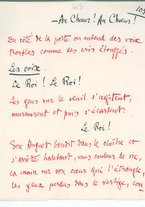 103
103
— Au Chœur ! Au Chœur !
Du côté de la porte on entend des voix
troubles comme des cris étouffés.
Les voix
Le Roi ! Le Roi !
Les gens sur le seuil s'agitent,
murmurent et puis s'écartent.
Le Roi !
bondit dans le cloître et
s'arrête haletant, sous couleur de vie,
la main sur son cœur qui l'étrangle,
les yeux perdus dans le vertige, con